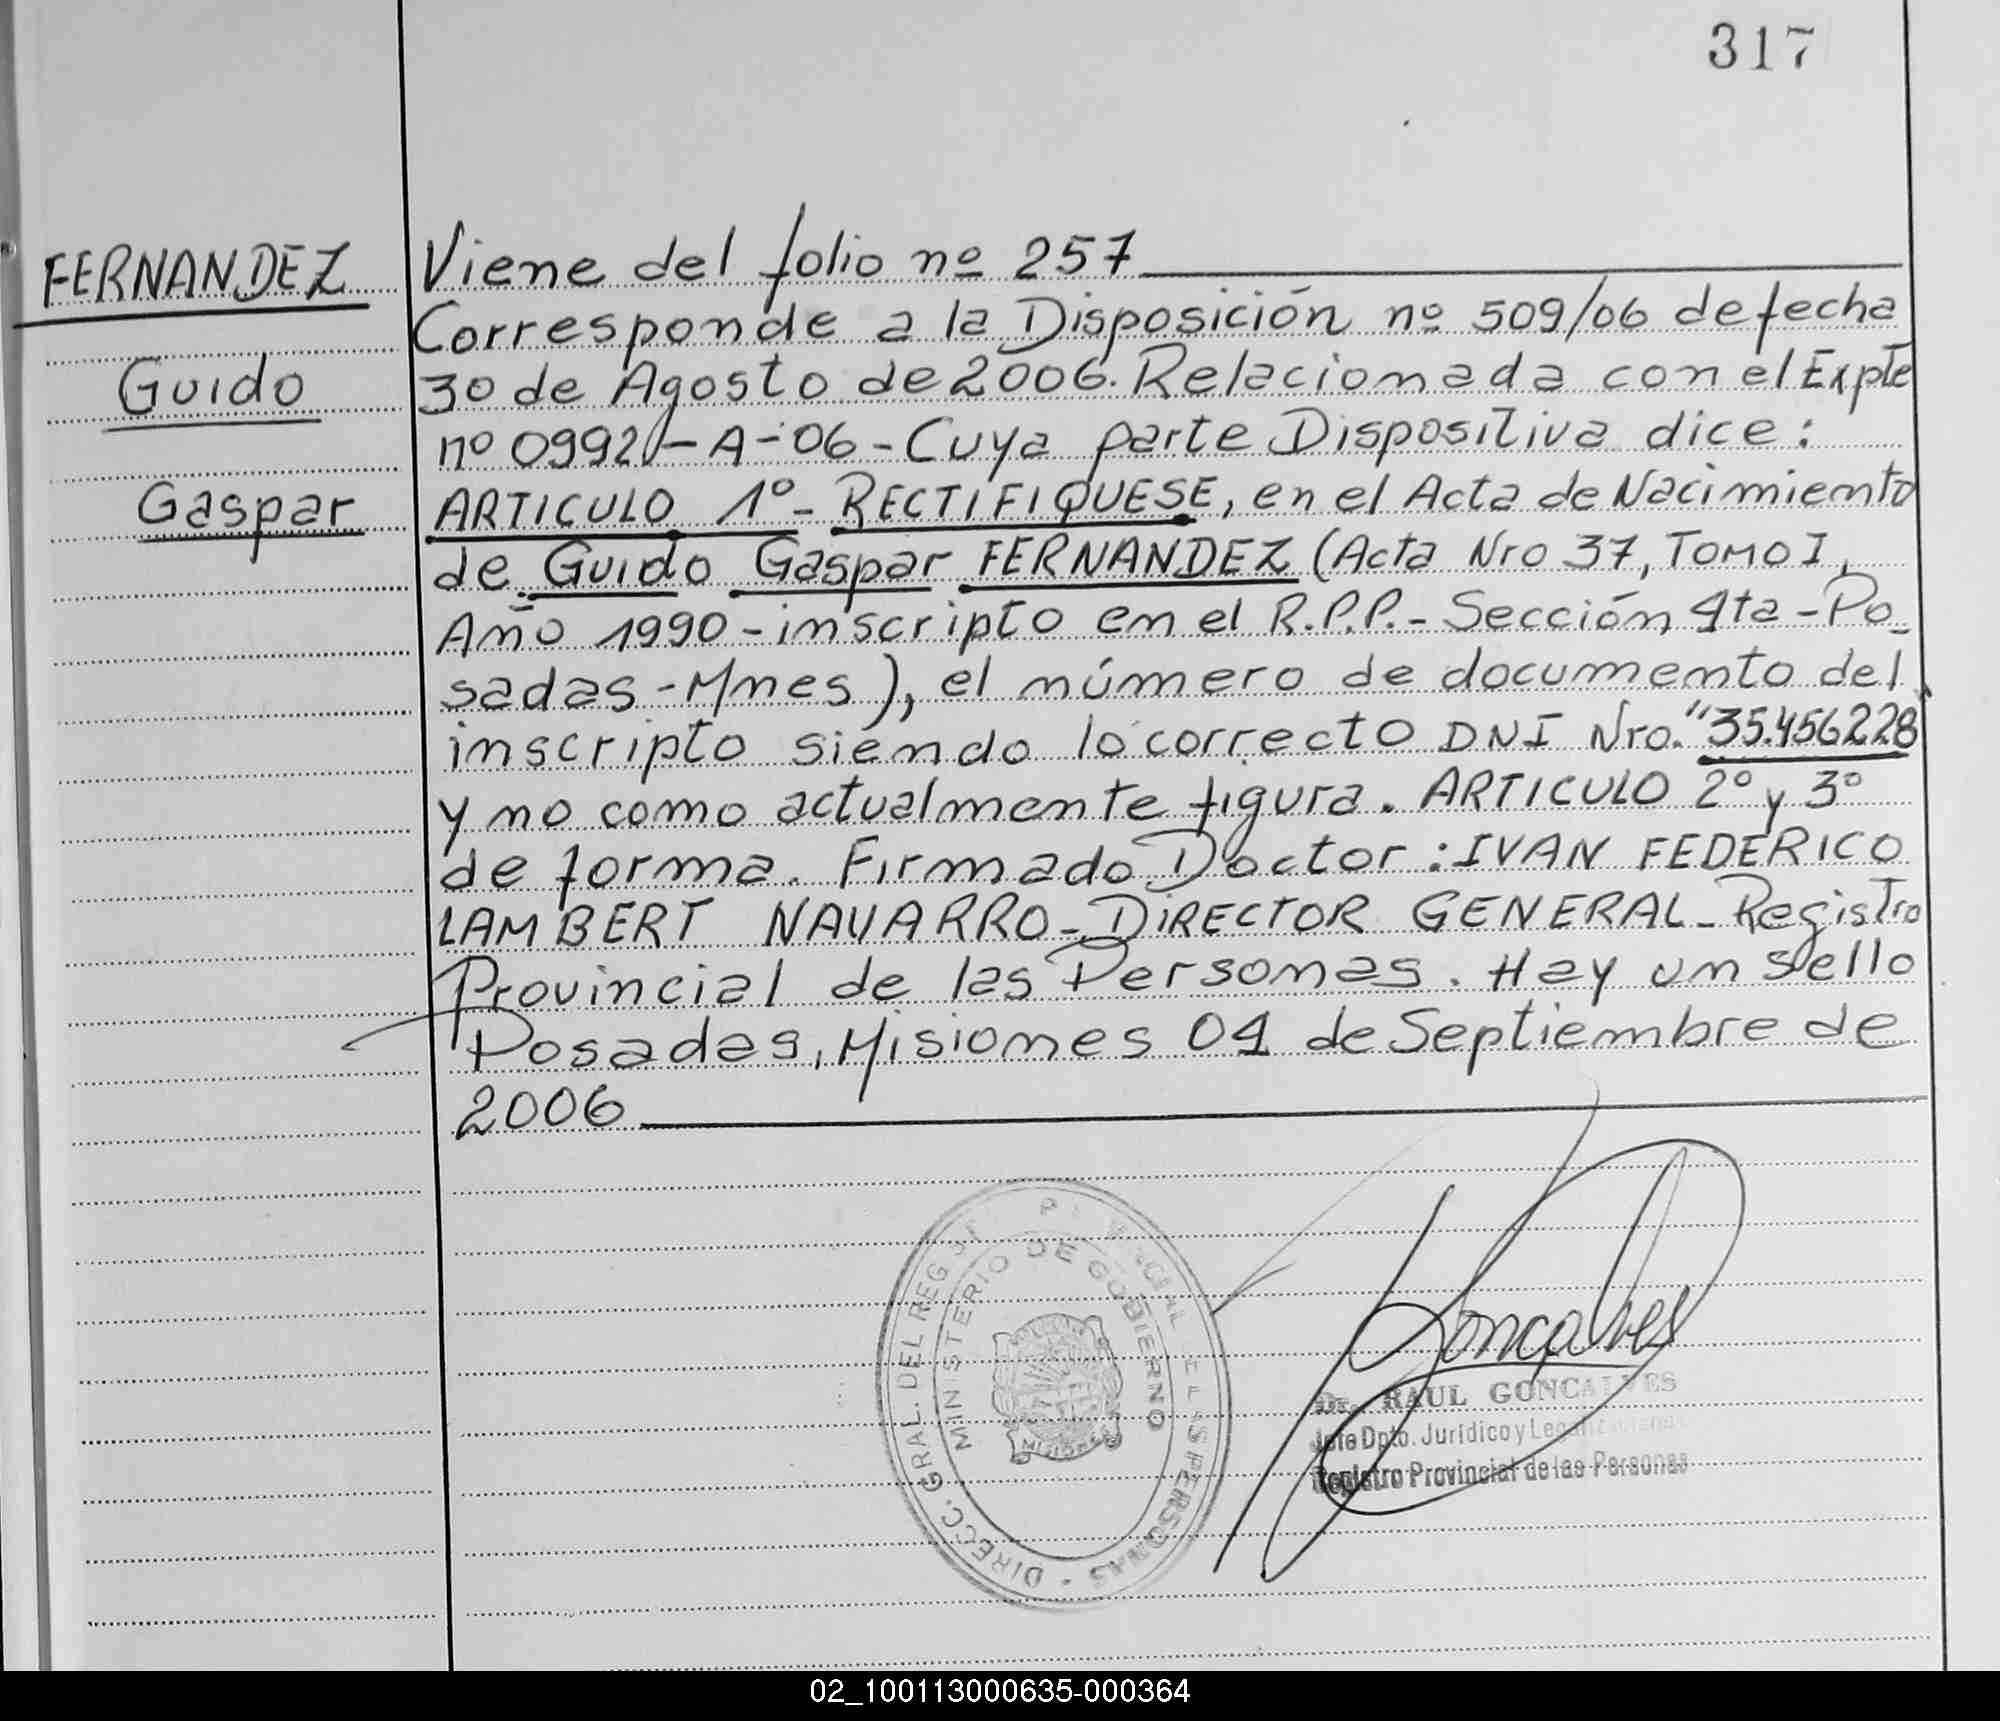 317
FERNANDEZ
Guido
Gaspar
Viene del folio nº 257
Corresponde a la Disposición nº 509/06 de fecha
30 de Agosto de 2006. Relacionada con el Expte
nº 0992-A-06-Cuya parte Dispositiva dice:
ARTICULO 1º- RECTIFIQUESE, en el Acta de Nacimiento
de Guido Gaspar FERNANDEZ (Acta Nro 37, Tomo I,
Año 1990-inscripto en el R.P.P.-Sección 4ta-Po-
sadas-Mnes), el número de documento del
inscripto siendo lo correcto DNI Nro. "35.456228"
y no como actualmente figura. ARTICULO 2º y 3º
de forma. Firmado Doctor: IVAN FEDERICO
LAMBERT NAVARRO-DIRECTOR GENERAL-Registro
Provincial de las Personas. Hay un sello
Posadas, Misiones 04 de Septiembre de
2006
DIRECC. GRAL. DEL REG PERSONAS -
MINISTERIO DE GOBIERNO
Gonçalves
Dr. RAUL GONCALVES
Jefe Dpto. Jurídico y Legalizaciones
Registro Provincial de las Personas
02_100113000635-000364